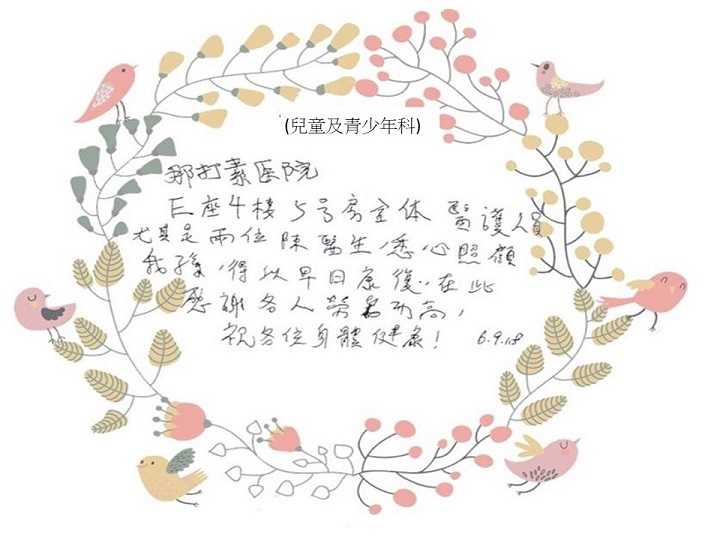 (兒童及青少年科)
那打素医院
E座4楼5号房全体 醫護人員
尤其是兩位陳醫生,悉心照顧
我孫,得以早日康復,在此
感謝各人勞苦功高,
祝各位身體健康! 6.9.18